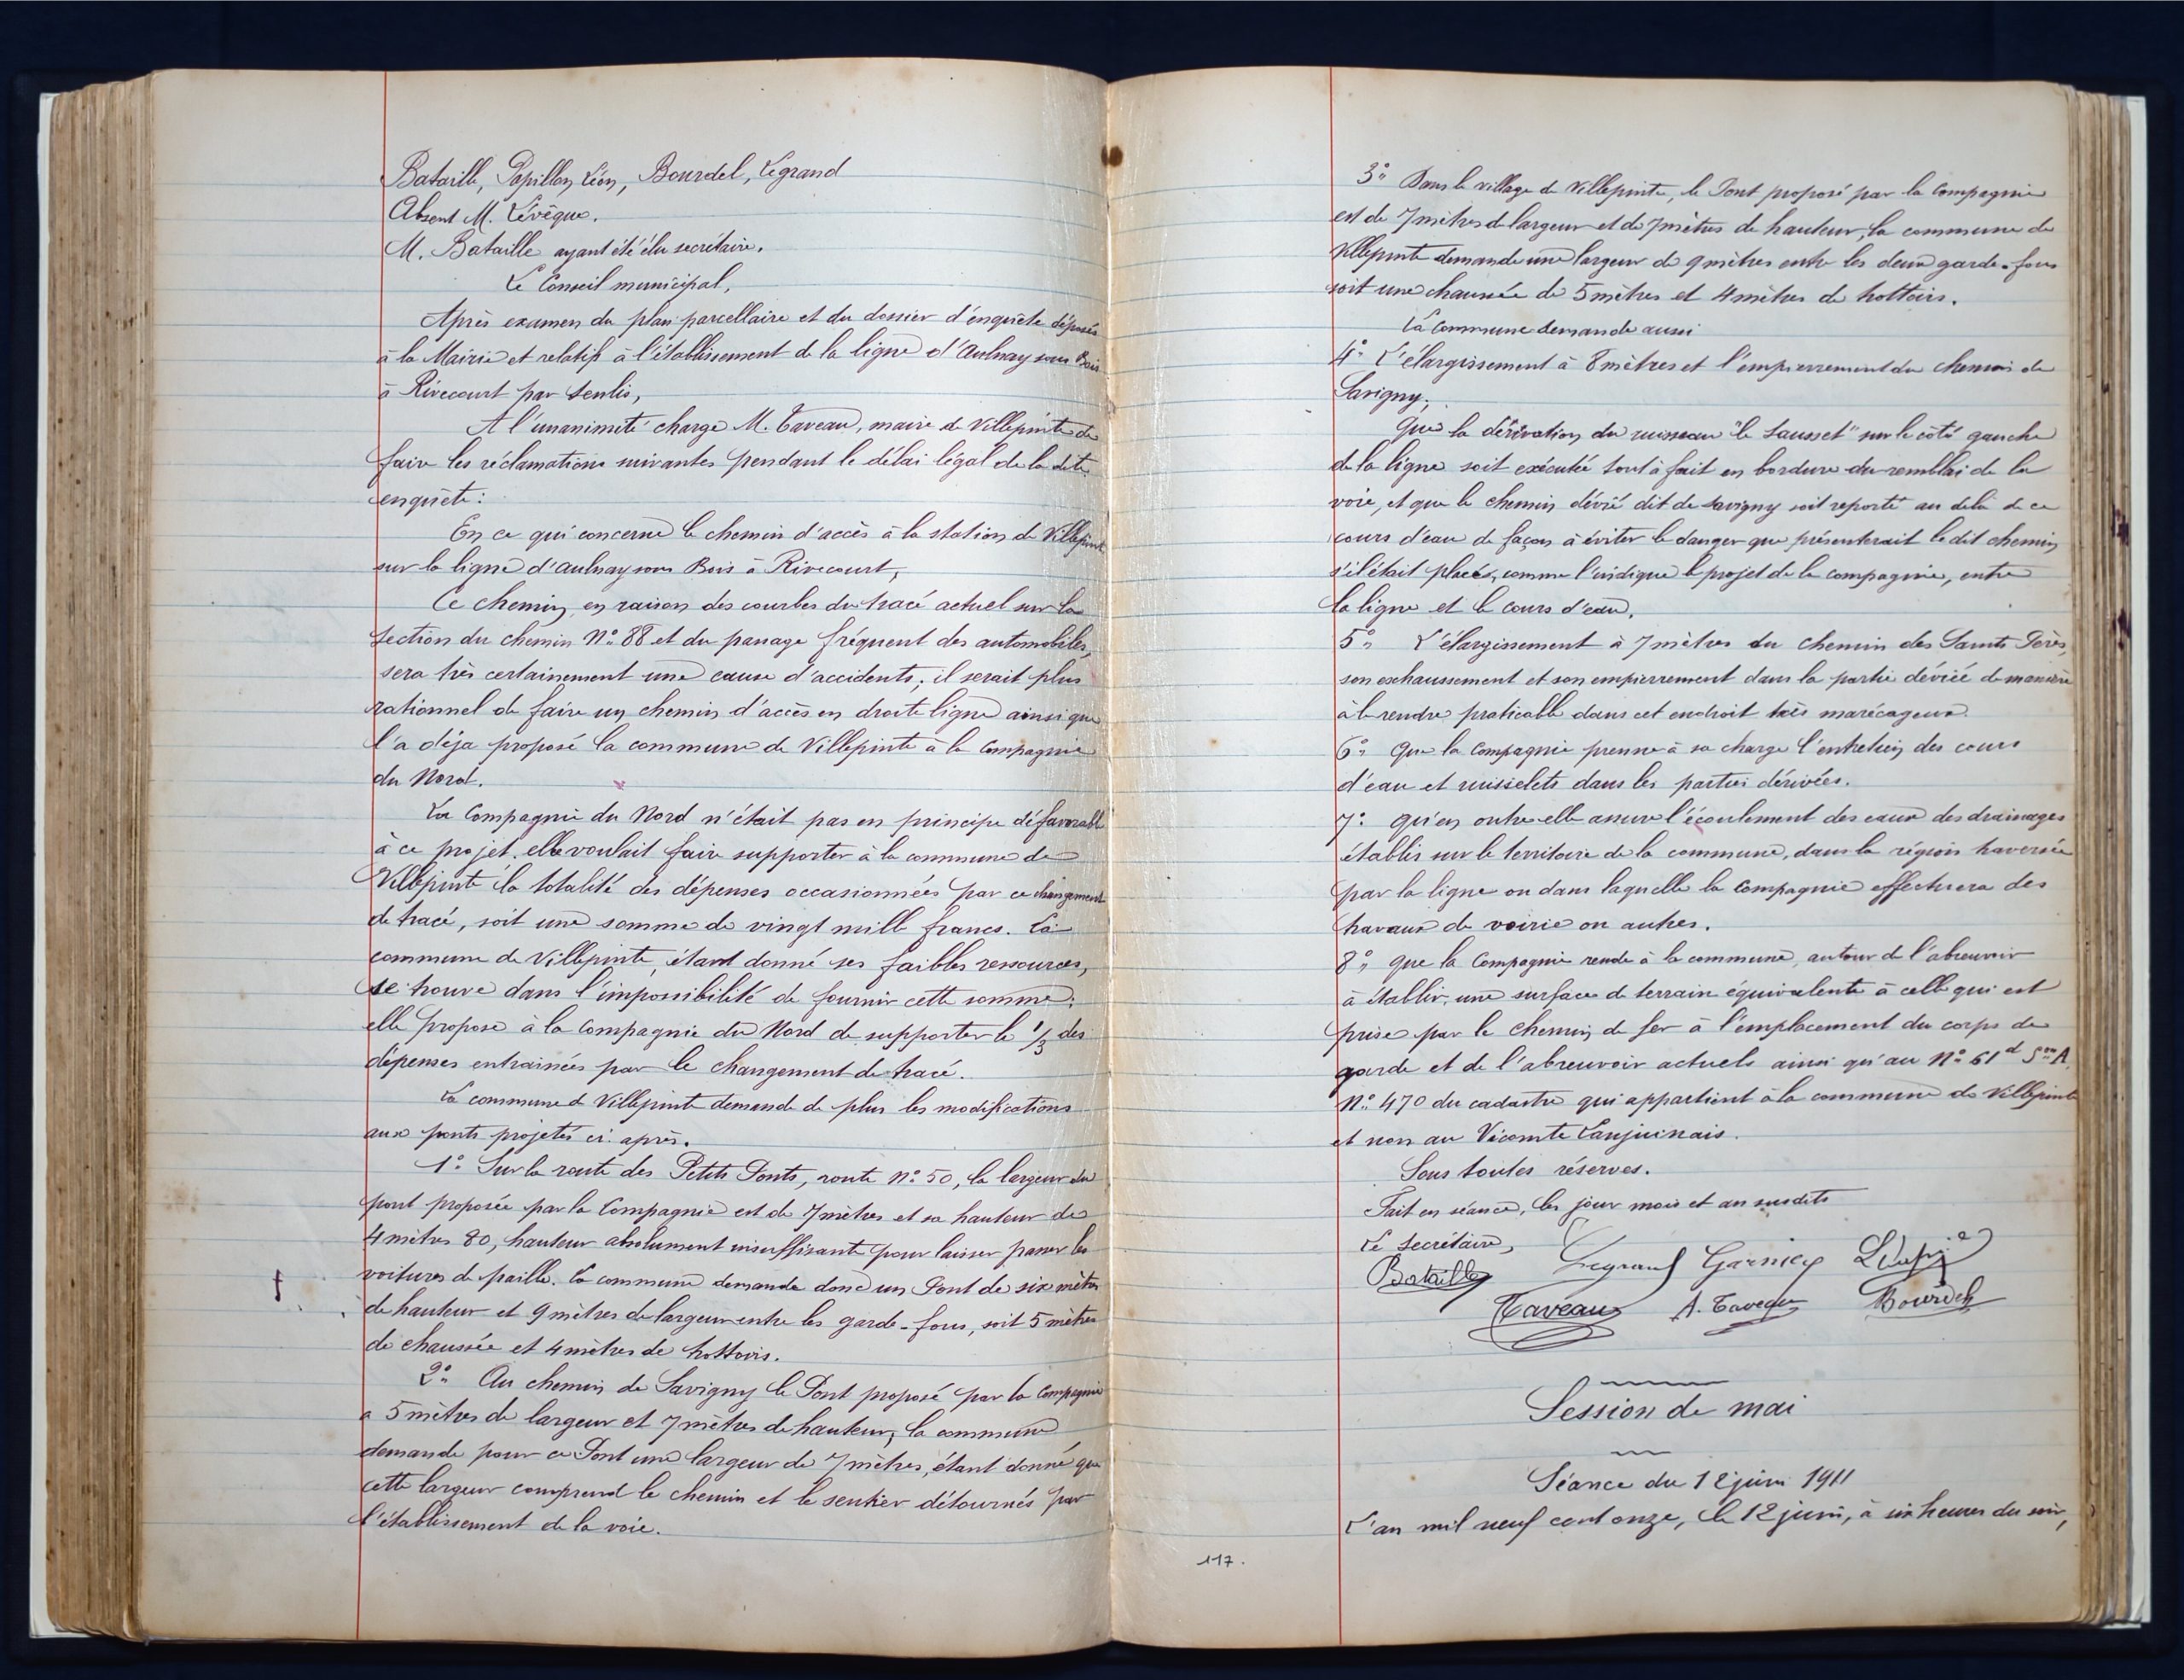 Bataille, Papillon Léon, Bourdel, Legrand
Absent M. Lévêque.
M. Bataille ayant été élu secrétaire.
Le Conseil municipal,
Après examen du plan parcellaire et du dossier d'enquête déposés
à la Mairie et relatifs à l'établissement de la ligne d'Aulnay sous Bois
à Rivecourt par Senlis,
A l'unanimité charge M. Taveau, maire de Villepinte de
faire les réclamations suivantes pendant le délai légal de la dite
enquête :
En ce qui concerne le chemin d'accès à la station de Villepinte
sur la ligne d'Aulnay sous Bois à Rivecourt,
Ce chemin, en raison des courbes du tracé actuel sur la
section du chemin N° 88 et du passage fréquent des automobiles,
sera très certainement une cause d'accidents ; il serait plus
rationnel de faire un chemin d'accès en droite ligne ainsi que
l'a déja proposé la commune de Villepinte à la Compagnie
du Nord.
La Compagnie du Nord n'était pas en principe défavorable
à ce projet. elle voulait faire supporter à la commune de
Villepinte la totalité des dépenses occasionnées par ce changement
de tracé, soit une somme de vingt mille francs. La
commune de Villepinte, étant donné ses faibles ressources,
se trouve dans l'impossibilité de fournir cette somme ;
elle propose à la Compagnie du Nord de supporter le 1/3 des
dépenses entrainées par le changement de tracé.
La commune de Villepinte demande de plus les modifications
aux ponts projetés ci-après.
1° Sur la route des Petits Ponts, route N° 50, la largeur du
pont proposée par la Compagnie est de 7 mètres et sa hauteur de
4 mètres 80, hauteur absolument insuffisante pour laisser passer les
voitures de paille. La commune demande donc un Pont de six mètres
de hauteur et 9 mètres de largeur entre les garde-fous, soit 5 mètres
de chaussée et 4 mètres de trottoirs.
2° Au chemin de Savigny le Pont proposé par la Compagnie
a 5 mètres de largeur et 7 mètres de hauteur, la commune
demande pour ce Pont une largeur de 7 mètres, étant donné que
cette largeur comprend le chemin et le sentier détournés par
l'établissement de la voie.
117.
3° Dans le village de Villepinte, le Pont proposé par la Compagnie
est de 7 mètres de largeur et de 7 mètres de hauteur, la commune de
Villepinte demande une largeur de 9 mètres entre les deux garde-fous
soit une chaussée de 5 mètres et 4 mètres de trottoirs.
La Commune demande aussi
4° L'élargissement à 8 mètres et l'empierrement du chemin de
Savigny ;
Que la dérivation du ruisseau "le Sausset" sur le côté gauche
de la ligne soit exécutée tout à fait en bordure du remblai de la
voie, et que le chemin dévié dit de Savigny soit reporté au delà de ce
cours d'eau de façon à éviter le danger que présenterait le dit chemin
s'il était placé, comme l'indique le projet de la compagnie, entre
la ligne et le cours d'eau.
5° L'élargissement à 7 mètres du chemin des Saints Pères,
son exhaussement et son empierrement dans la partie déviée de manière
à le rendre praticable dans cet endroit très marécageux.
6° Que la Compagnie prenne à sa charge l'entretien des cours
d'eau et ruisselets dans les parties dérivées.
7° Qu'en outre elle assure l'écoulement des eaux des drainages
établis sur le territoire de la commune, dans la région traversée
par la ligne ou dans laquelle la Compagnie effectuera des
travaux de voirie ou autres.
8° Que la Compagnie rende à la commune, autour de l'abreuvoir
à établir, une surface de terrain équivalente à celle qui est
prise par le chemin de fer à l'emplacement du corps de
garde et de l'abreuvoir actuels ainsi qu'au N° 61 d Son A,
N° 470 du cadastre qui appartient à la commune de Villepinte
et non au Vicomte Lanjuinais.
Sous toutes réserves.
Fait en séance, les jour mois et an susdits
Le Secrétaire,
Bataille Legrand Garnier
Taveau A. Taveau Bourdel
Session de mai
Séance du 12 juin 1911
L'an mil neuf cent onze, le 12 juin, à six heures du soir,